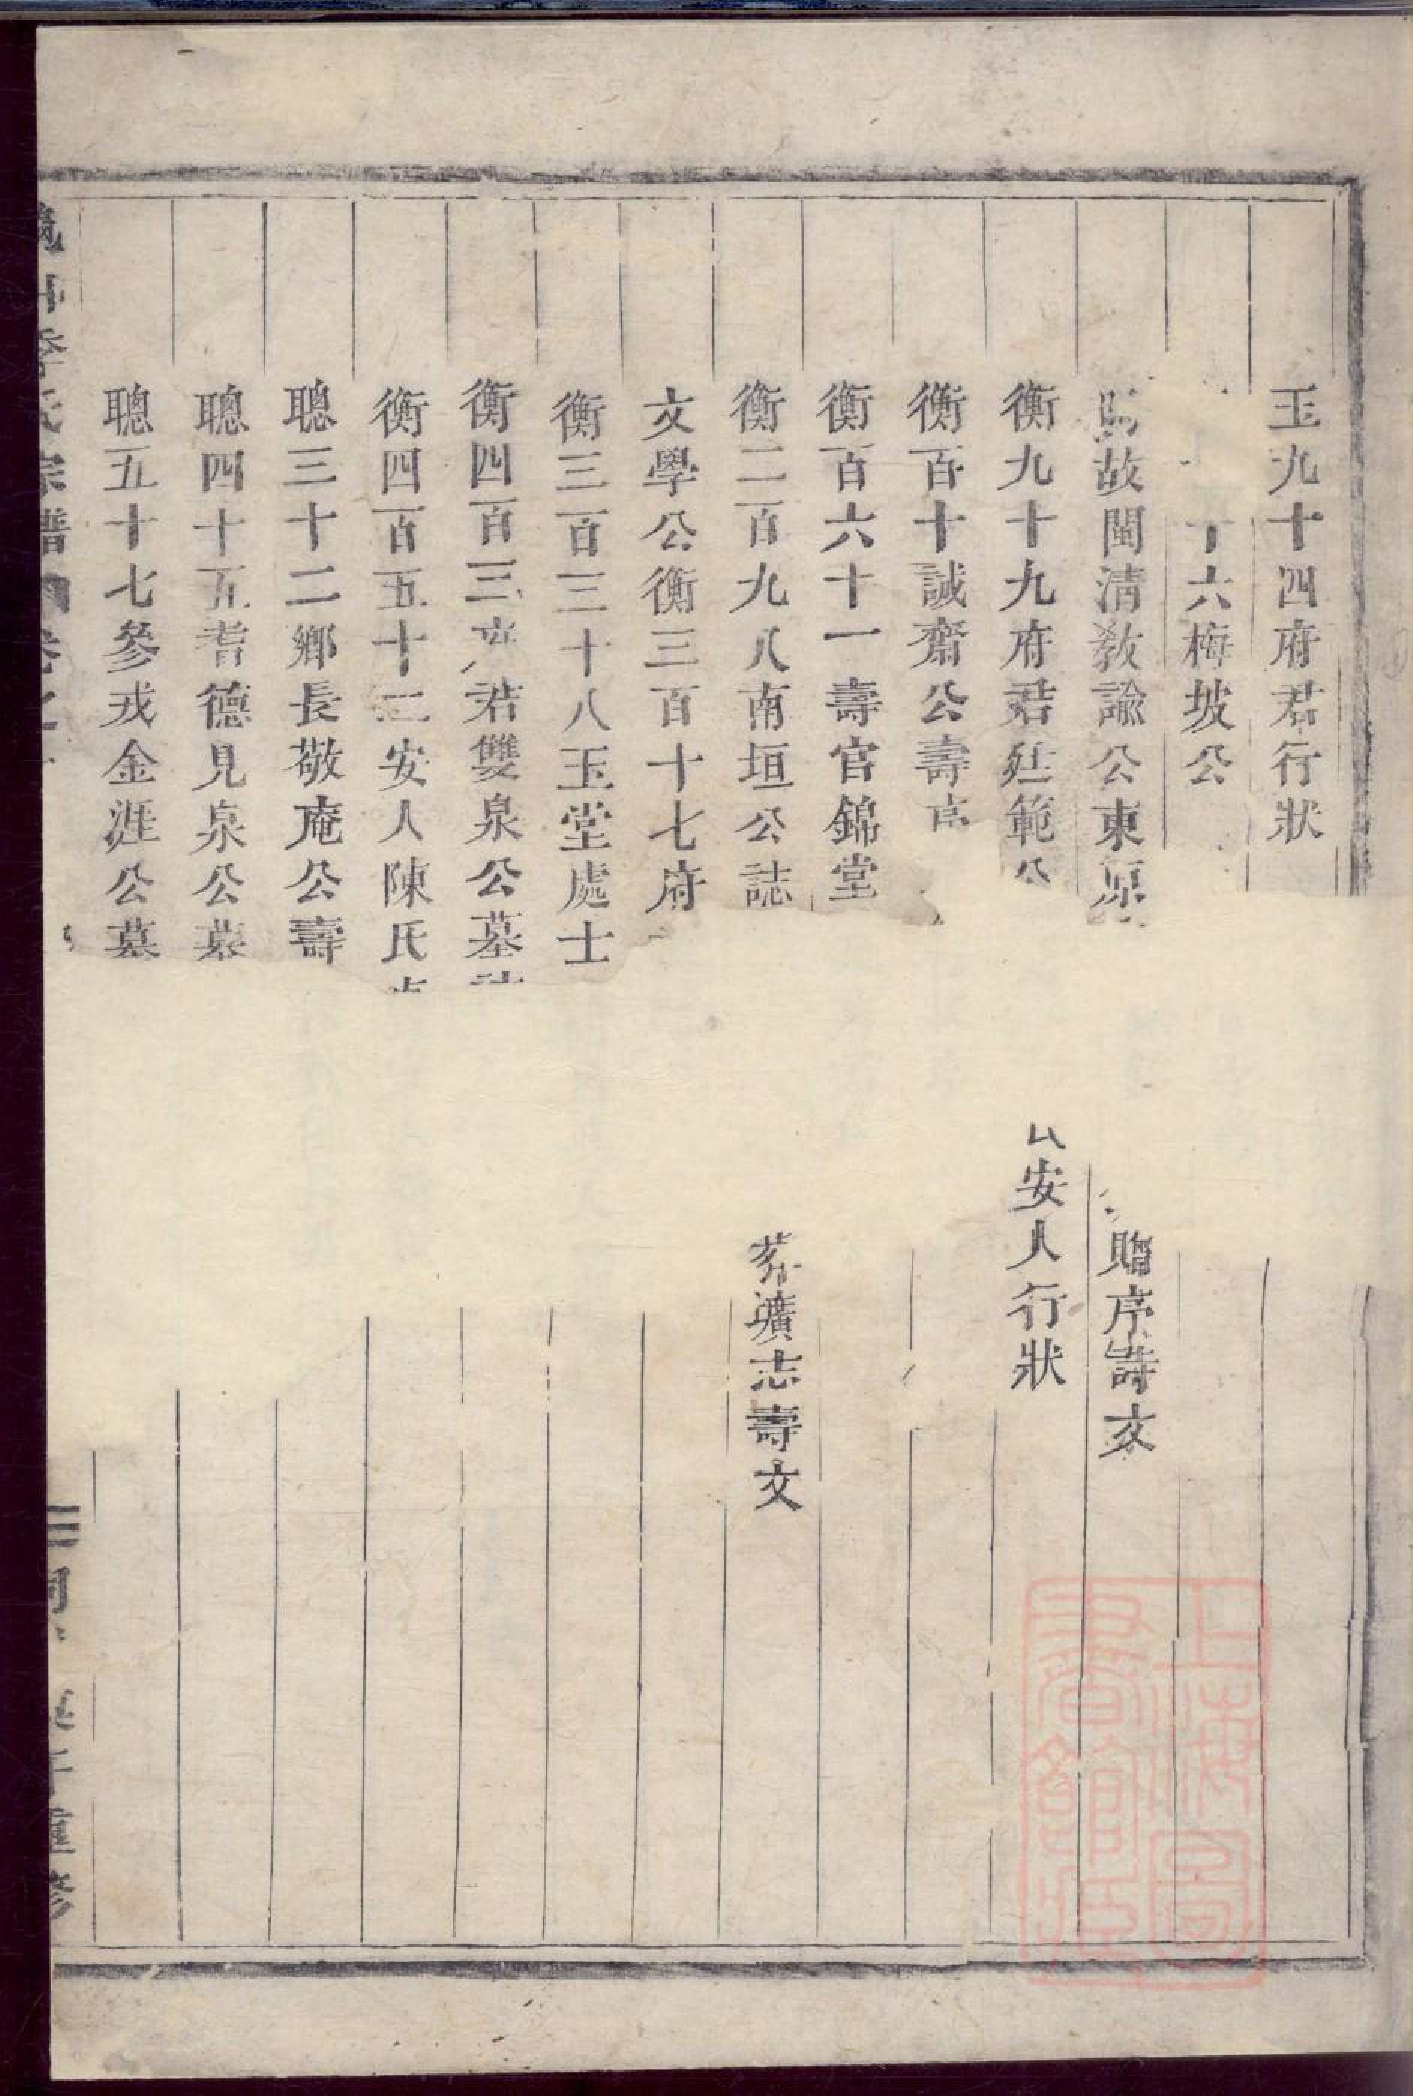 玉九十四府君行狀
十六梅坡公
故閩清教諭公東原
贈序壽文
衡九十九府君廷範公
安人行狀
衡百十誠齋公壽官
衡百六十一壽官錦堂
衡二百九八南垣公誌
葬壙志壽文
文學公衡三百十七府
衡三百三十八玉堂處士
衡四百三六君雙泉公墓
衡四百五十三安人陳氏
聰三十二鄉長敬庵公壽
聰四十五耆德見泉公墓
聰五十七參戎金涯公墓
氏宗譜 卷之
重修
上海圖書館藏